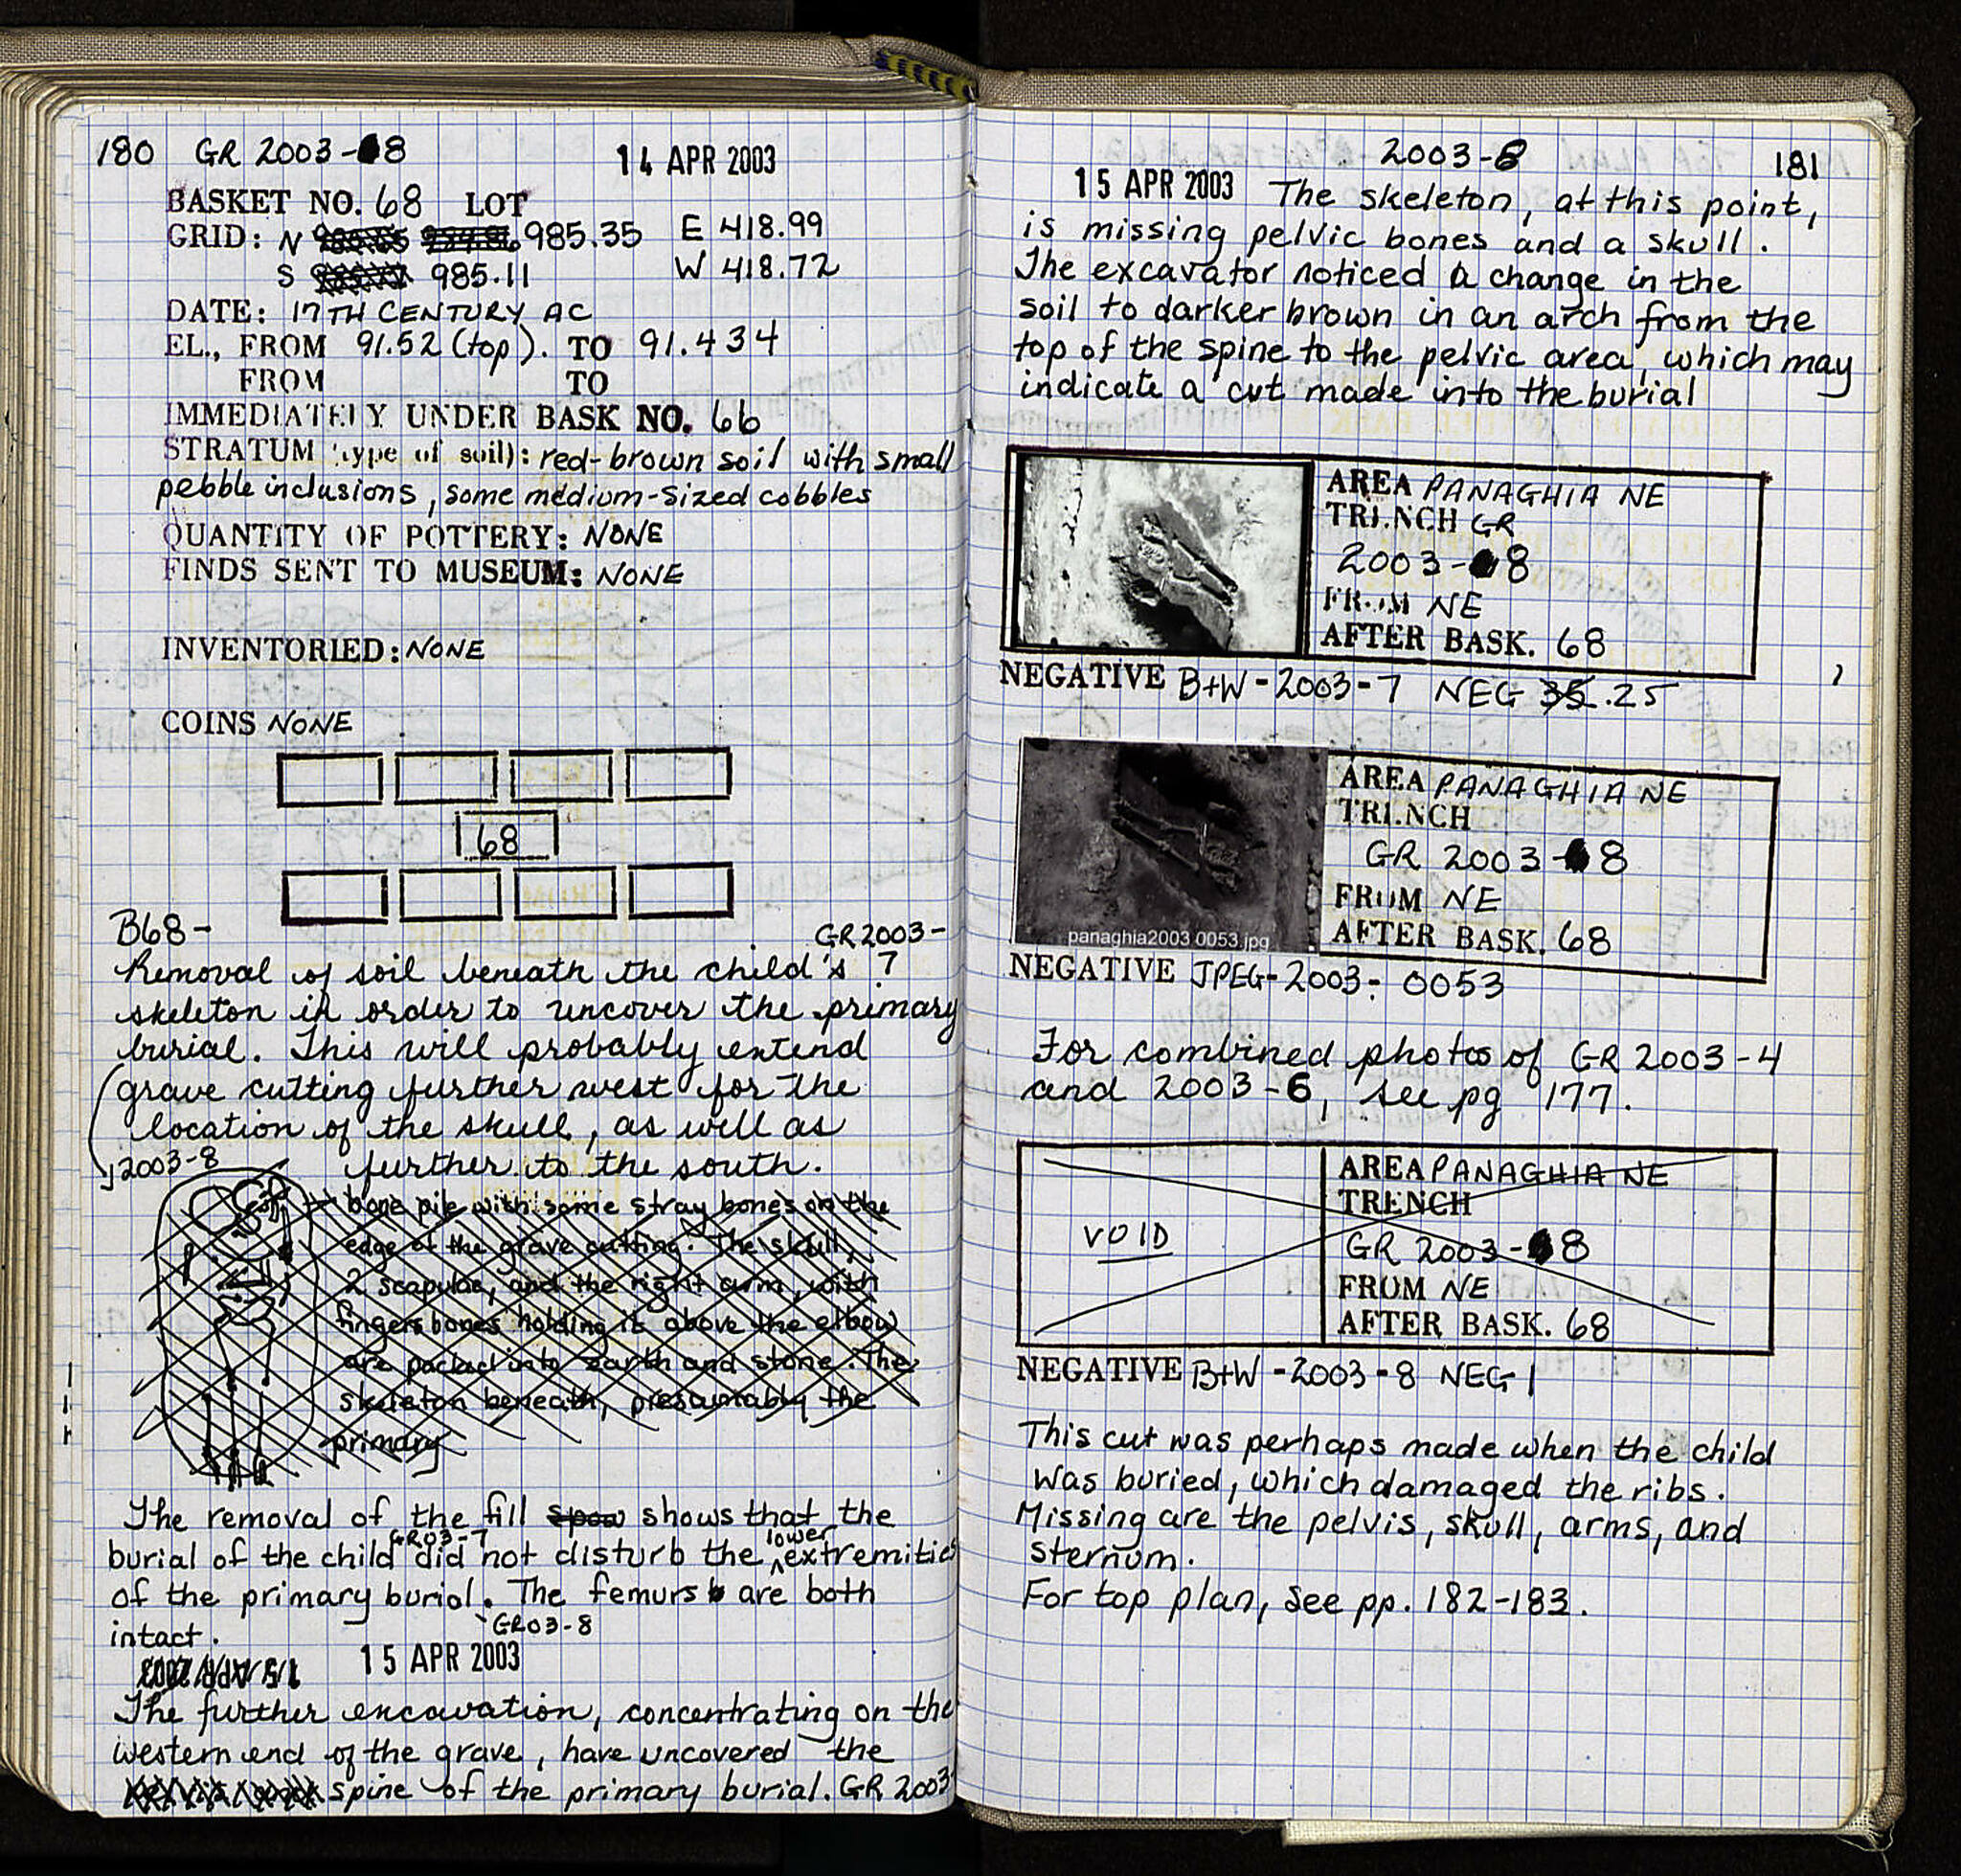 180 GR 2003-8 14 APR 2003
BASKET NO. 68 LOT
GRID: N 985.35 E 418.99
S 985.11 W 418.72
DATE: 17TH CENTURY AC
EL., FROM 91.52 (top). TO 91.434
FROM TO
IMMEDIATELY UNDER BASK NO. 66
STRATUM (type of soil): red-brown soil with small
pebble inclusions, some medium-sized cobbles
QUANTITY OF POTTERY: NONE
FINDS SENT TO MUSEUM: NONE
INVENTORIED: NONE
COINS NONE
68
B68- GR2003-
Removal of soil beneath the child's 7
skeleton in order to uncover the primary
burial. This will probably extend
grave cutting further west for the
location of the skull, as well as
2003-8 further to the south.
bone pile with some stray bones on the
edge of the grave cutting. The skull,
2 scapulae, and the right arm, with
fingers bones holding it above the elbow
are packed into earth and stone. The
skeleton beneath, presumably the
primary
The removal of the fill shows that the
burial of the child GR03-7 did not disturb the lower extremities
of the primary burial. The femurs are both
intact. GR03-8
15 APR 2003 15 APR 2003
The further excavation, concentrating on the
western end of the grave, have uncovered the
spine of the primary burial. GR 2003-
2003-8 181
15 APR 2003 The skeleton, at this point,
is missing pelvic bones and a skull.
The excavator noticed a change in the
soil to darker brown in an arch from the
top of the spine to the pelvic area, which may
indicate a cut made into the burial
AREA PANAGHIA NE
TRENCH GR
2003-8
FROM NE
AFTER BASK. 68
NEGATIVE B+W-2003-7 NEG 35.25
panaghia2003 0053.jpg
AREA PANAGHIA NE
TRENCH
GR 2003-8
FROM NE
AFTER BASK. 68
NEGATIVE JPEG-2003-0053
For combined photos of GR 2003-4
and 2003-6, see pg 177.
VOID
AREA PANAGHIA NE
TRENCH
GR 2003-8
FROM NE
AFTER BASK. 68
NEGATIVE B+W-2003-8 NEG 1
This cut was perhaps made when the child
was buried, which damaged the ribs.
Missing are the pelvis, skull, arms, and
sternum.
For top plan, see pp. 182-183.